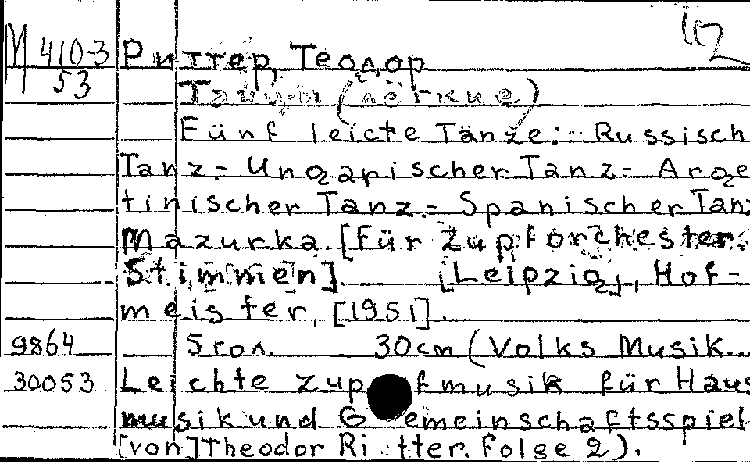 М 410-3
53
Риттер, Теодор
Танцы (лёгкие)
Fünf leichte Tänze: Russisch
Tanz.- Ungarischer Tanz.- Arge
tinischer Tanz.- Spanischer Tanz
Mazurka. [Für Zupforchester.
Stimmen]. [Leipzig], Hof-
meister, [1951].
9864
5 гол. 30cm (Volks Musik...
30053
Leichte Zupfmusik für Haus
musik und Gemeinschaftsspiel
[von] Theodor Ritter. Folge 2).